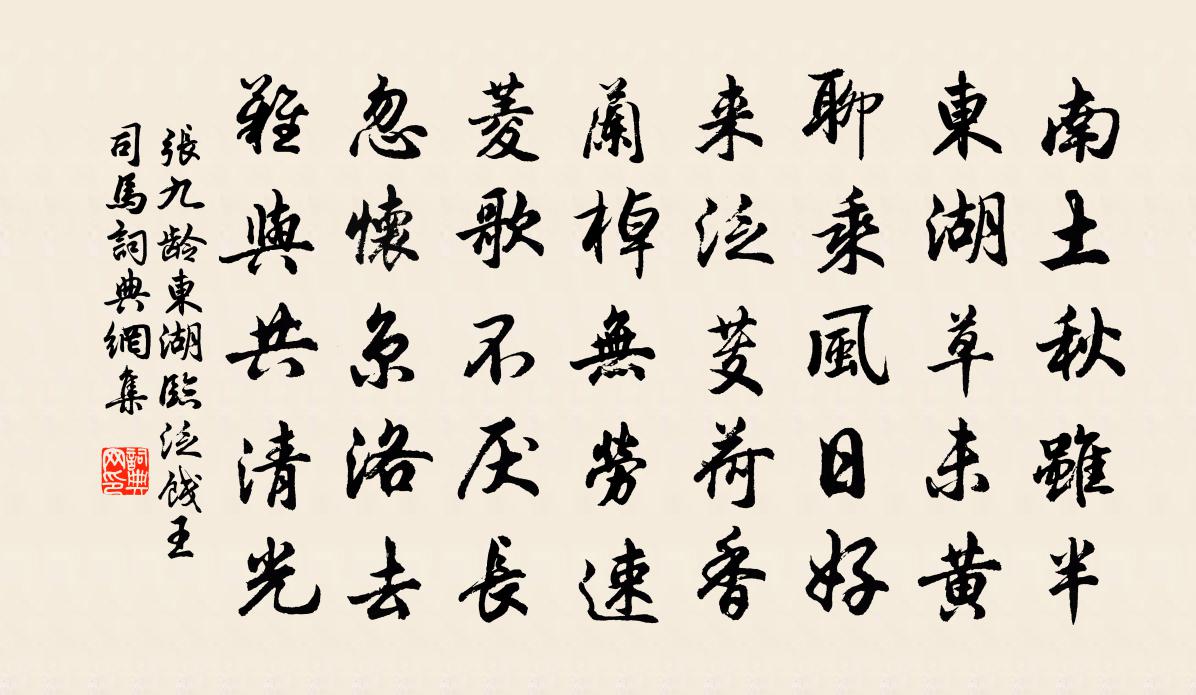 南土秋雖半
東湖草未黃
聊乘風日好
来泛芰荷香
蘭棹無勞速
菱歌不厌長
忽懷京洛去
難與共清光
張九龄東湖臨泛餞王
司馬詞典網集
詞典网印